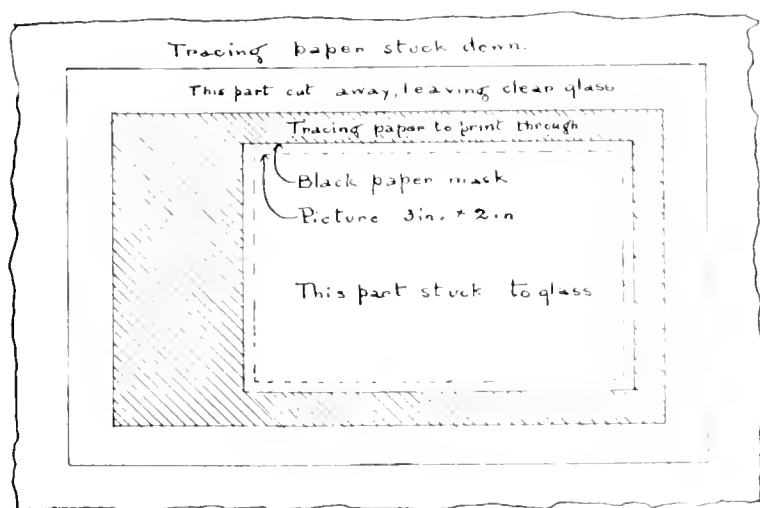 Tracing paper stuck down.
This part cut away, leaving clear glass
Tracing paper to print through
Black paper mask
Picture 3in. × 2in
This part stuck to glass